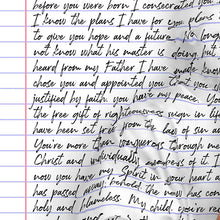 before you were born I consecrated you
I know the plans I have for you plans
to give you hope and a future. No long
not know what his master is doing but
heard from my Father I have made know
chose you and appointed you that you
justified by faith. you have my peace. Yo
the free gift of righteousness reign in life
have been set free from the law of sin an
You're more than conquerors through me
Christ and individually members of it. I
now you have my Spirit in your heart a
has passed away; behold, the new has com
holy and blameless. My child, you're re